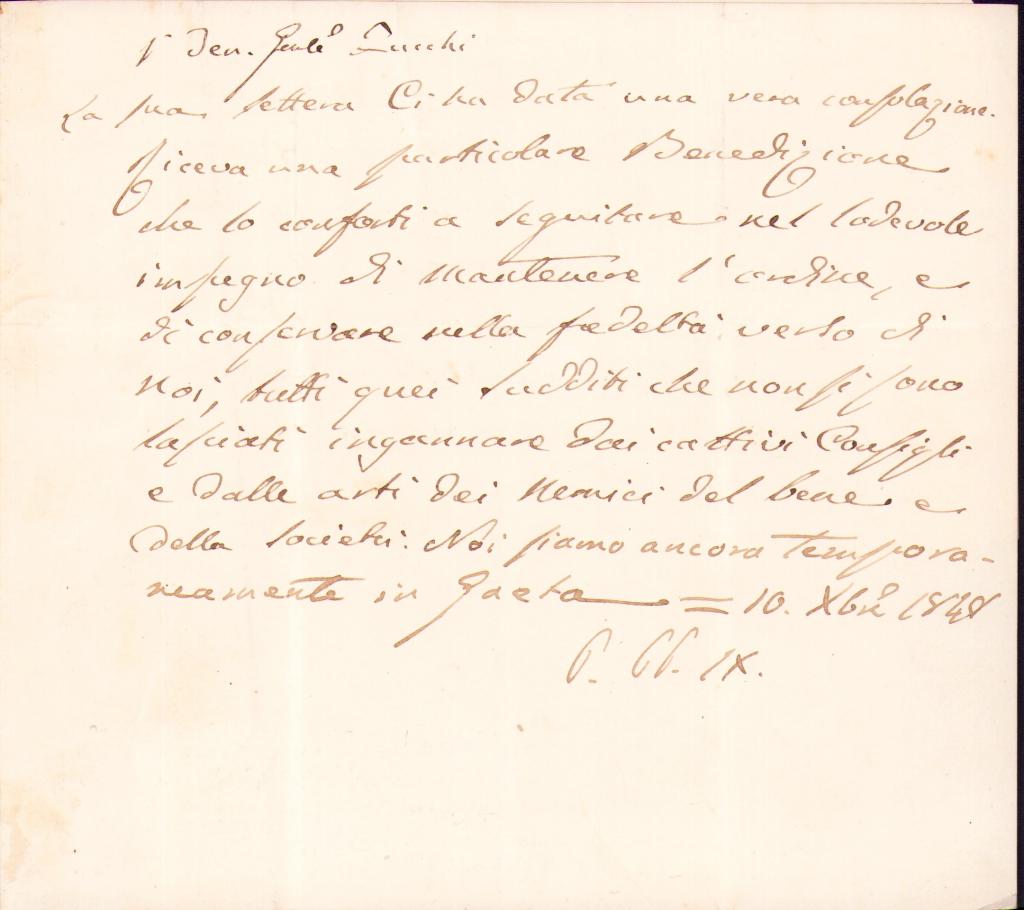 Ten. Genle Zucchi
La sua lettera Ci ha data una vera consolazione.
Riceva una particolare Benedizione
che lo conforti a seguitare nel lodevole
impegno di mantenere l'ordine, e
di conservare nella fedeltà verso di
Noi, tutti quei sudditi che non si sono
lasciati ingannare dai cattivi Consigli
e dalle arti dei Nemici del bene e
della società. Noi siamo ancora tempora-
neamente in Gaeta = 10. Xbre 1848
P. PP. IX.